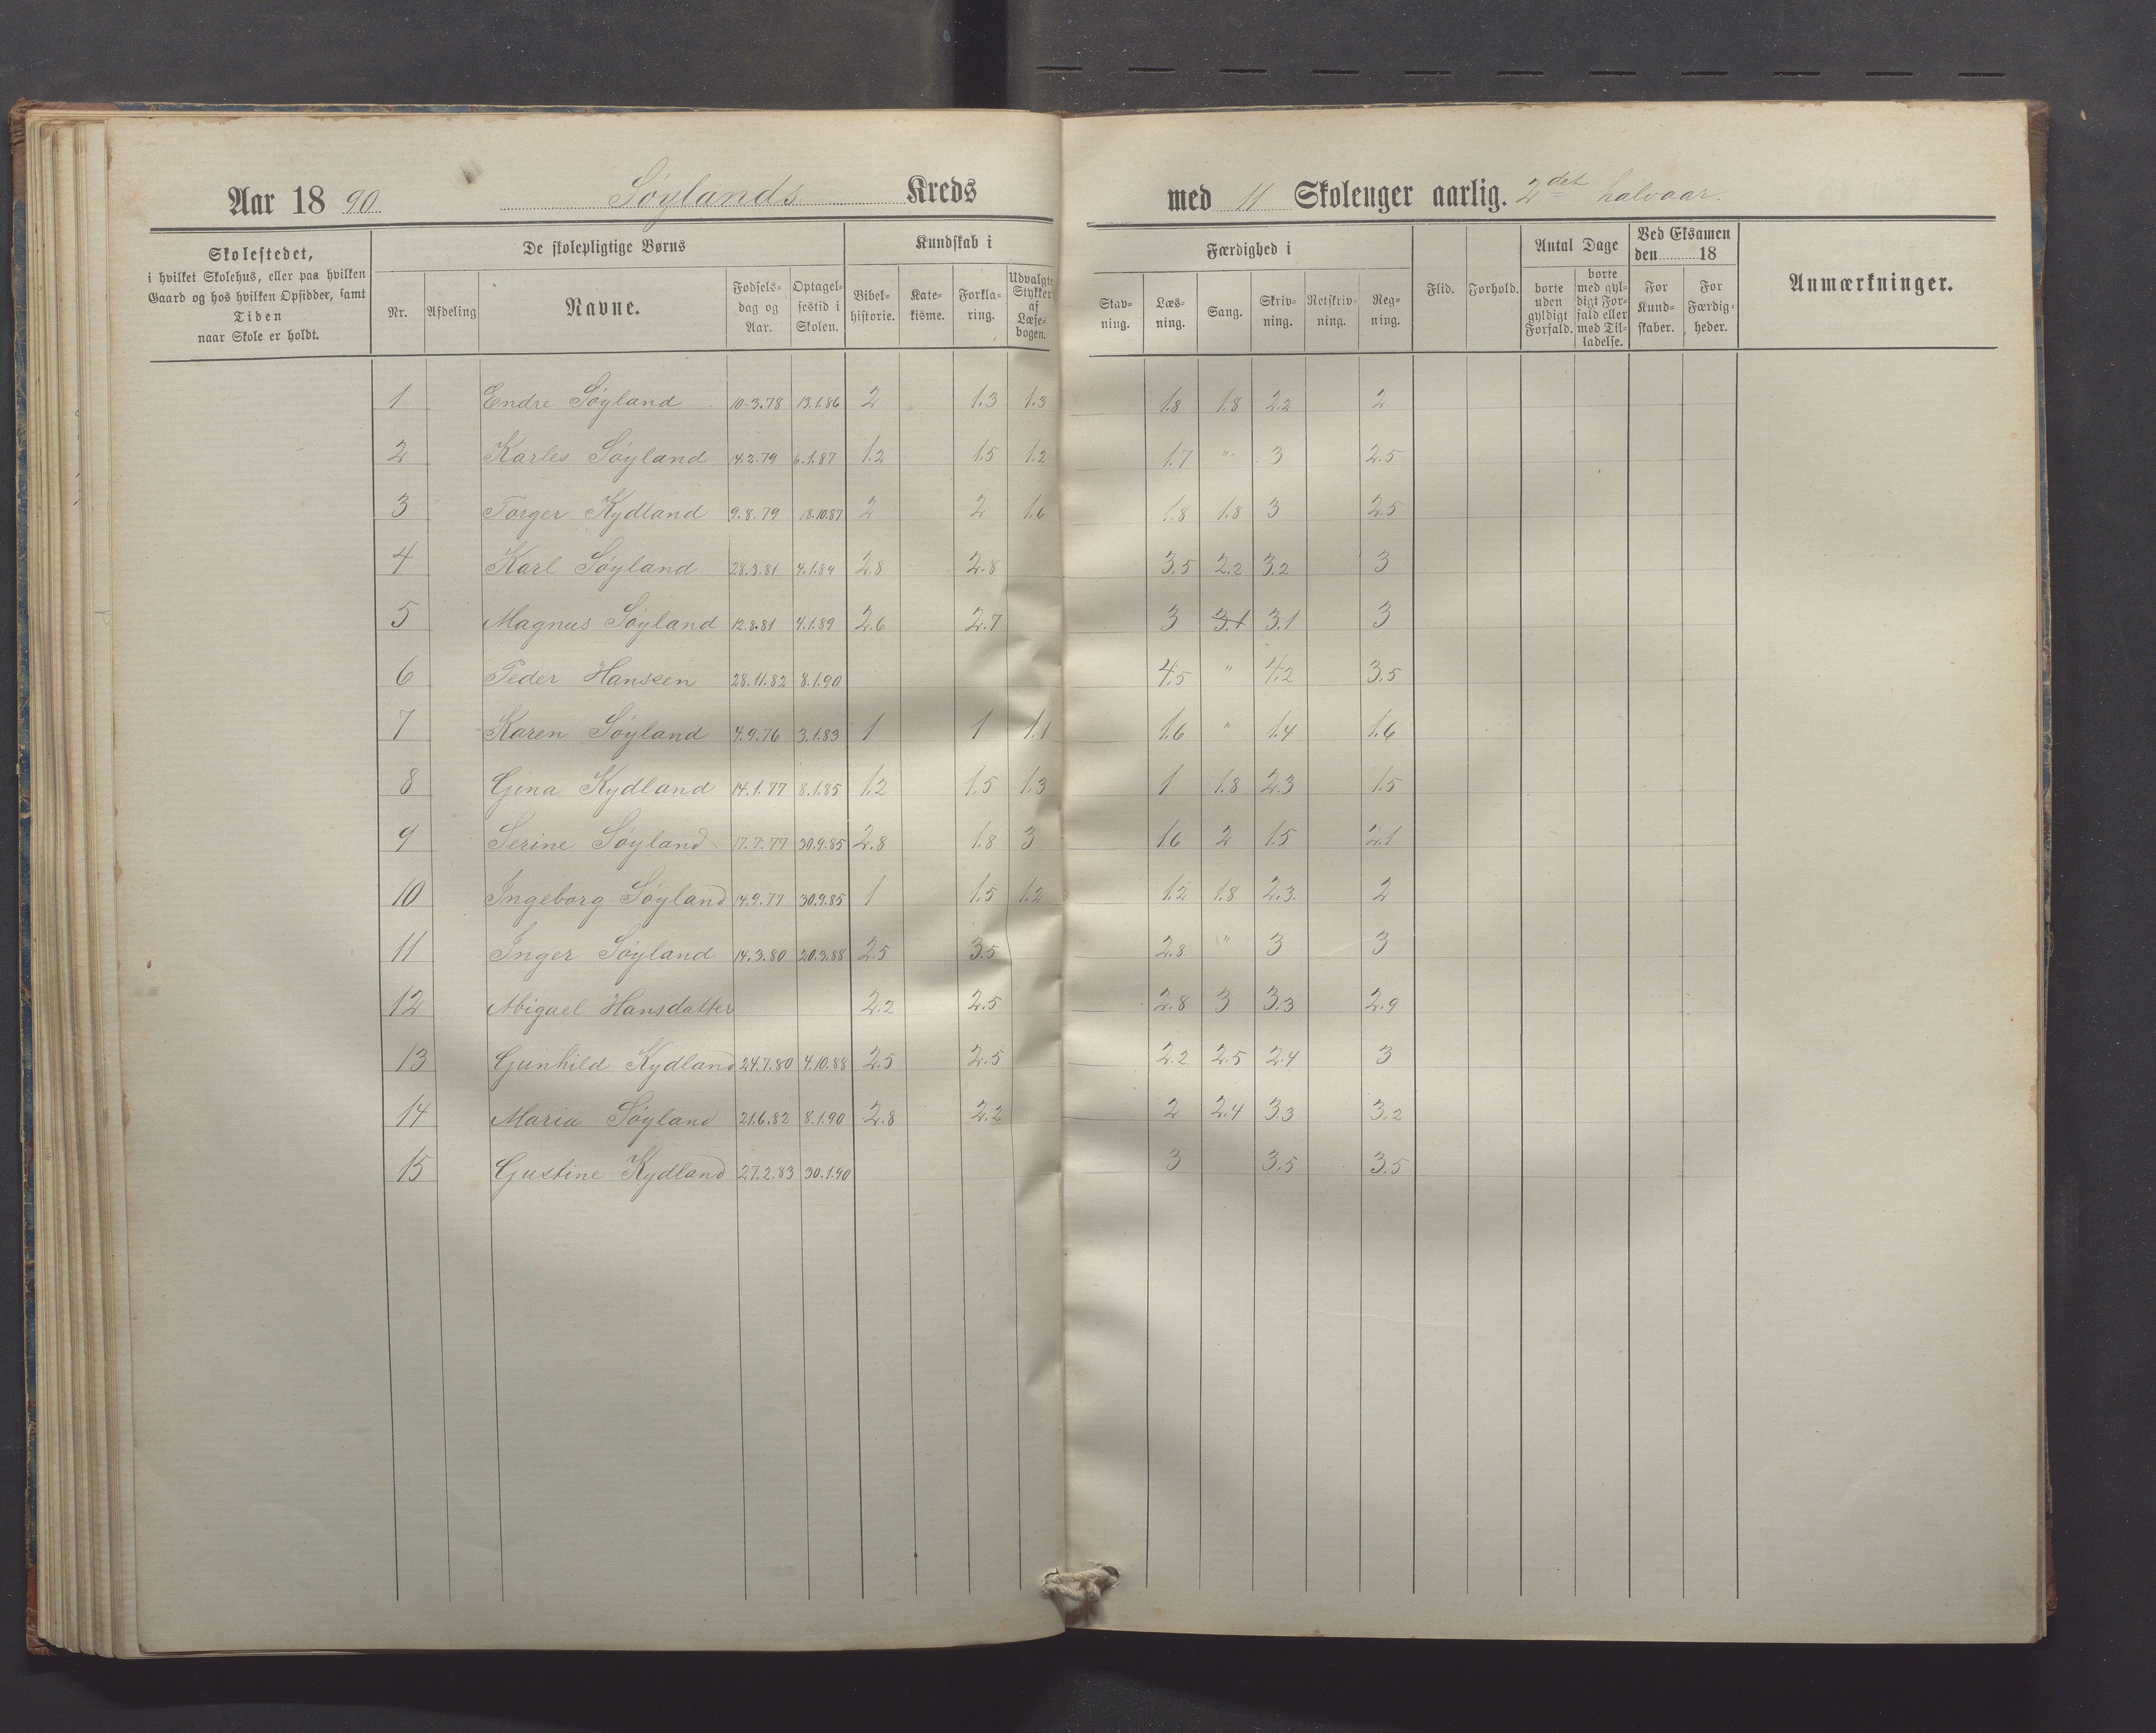 Aar 18 90 Søylands Kreds med 11 Skoleuger aarlig. 2det halvaar.
Skolestedet,
i hvilket Skolehus, eller paa hvilken
Gaard og hos hvilken Opsidder, samt
Tiden
naar Skole er holdt.
De skolepligtige Børns
Nr. Afdeling Navne. Fødsels-
dag og
Aar. Optagel-
sestid i
Skolen.
Kundskab i
Bibel-
historie. Kate-
kisme. Forkla-
ring. Udvalgte
Stykker
af
Læse-
bogen.
Færdighed i
Stav-
ning. Læs-
ning. Sang. Skriv-
ning. Retskriv-
ning. Reg-
ning.
Flid. Forhold.
Antal Dage
borte
uden
gyldigt
Forfald. borte
med gyl-
digt For-
fald eller
med Til-
ladelse.
Ved Eksamen
den 18
For
Kund-
skaber. For
Færdig-
heder.
Anmærkninger.
1 Endre Søyland 10-3.78 13.1.86 2 1.3 1.3 1.8 1.8 2.2 2
2 Karles Søyland 14.2.79 6.1.87 1.2 1.5 1.2 1.7 " 3 2.5
3 Torger Kydland 9.8.79 18.10.87 2 2 1.6 1.8 1.8 3 2.5
4 Karl Søyland 28.3.81 4.1.89 2.8 2.8 3.5 2.2 3.2 3
5 Magnus Søyland 12.8.81 4.1.89 2.6 2.7 3 3.1 3.1 3
6 Peder Hansen 28.11.82 8.1.90 4.5 " 4.2 3.5
7 Karen Søyland 4.9.76 3.1.83 1 1 1.1 1.6 " 1.4 1.6
8 Gina Kydland 14.1.77 8.1.85 1.2 1.5 1.3 1 1.8 2.3 1.5
9 Serine Søyland 17.7.77 30.9.85 2.8 1.8 3 1.6 2 1.5 2.1
10 Ingeborg Søyland 14.9.77 30.9.85 1 1.5 1.2 1.2 1.8 2.3. 2
11 Inger Søyland 14.3.80 20.3.88 2.5 3.5 2.8 " 3 3
12 Abigael Hansdatter 2.2 2.5 2.8 3 3.3 2.9
13 Gunhild Kydland 24.7.80 4.10.88 2.5 2.5 2.2 2.5 2.4 3
14 Maria Søyland 21.6.82 8.1.90 2.8 2.2 2 2.4 3.3 3.2
15 Gustine Kydland 27.2.83 30.1.90 3 3.5 3.5